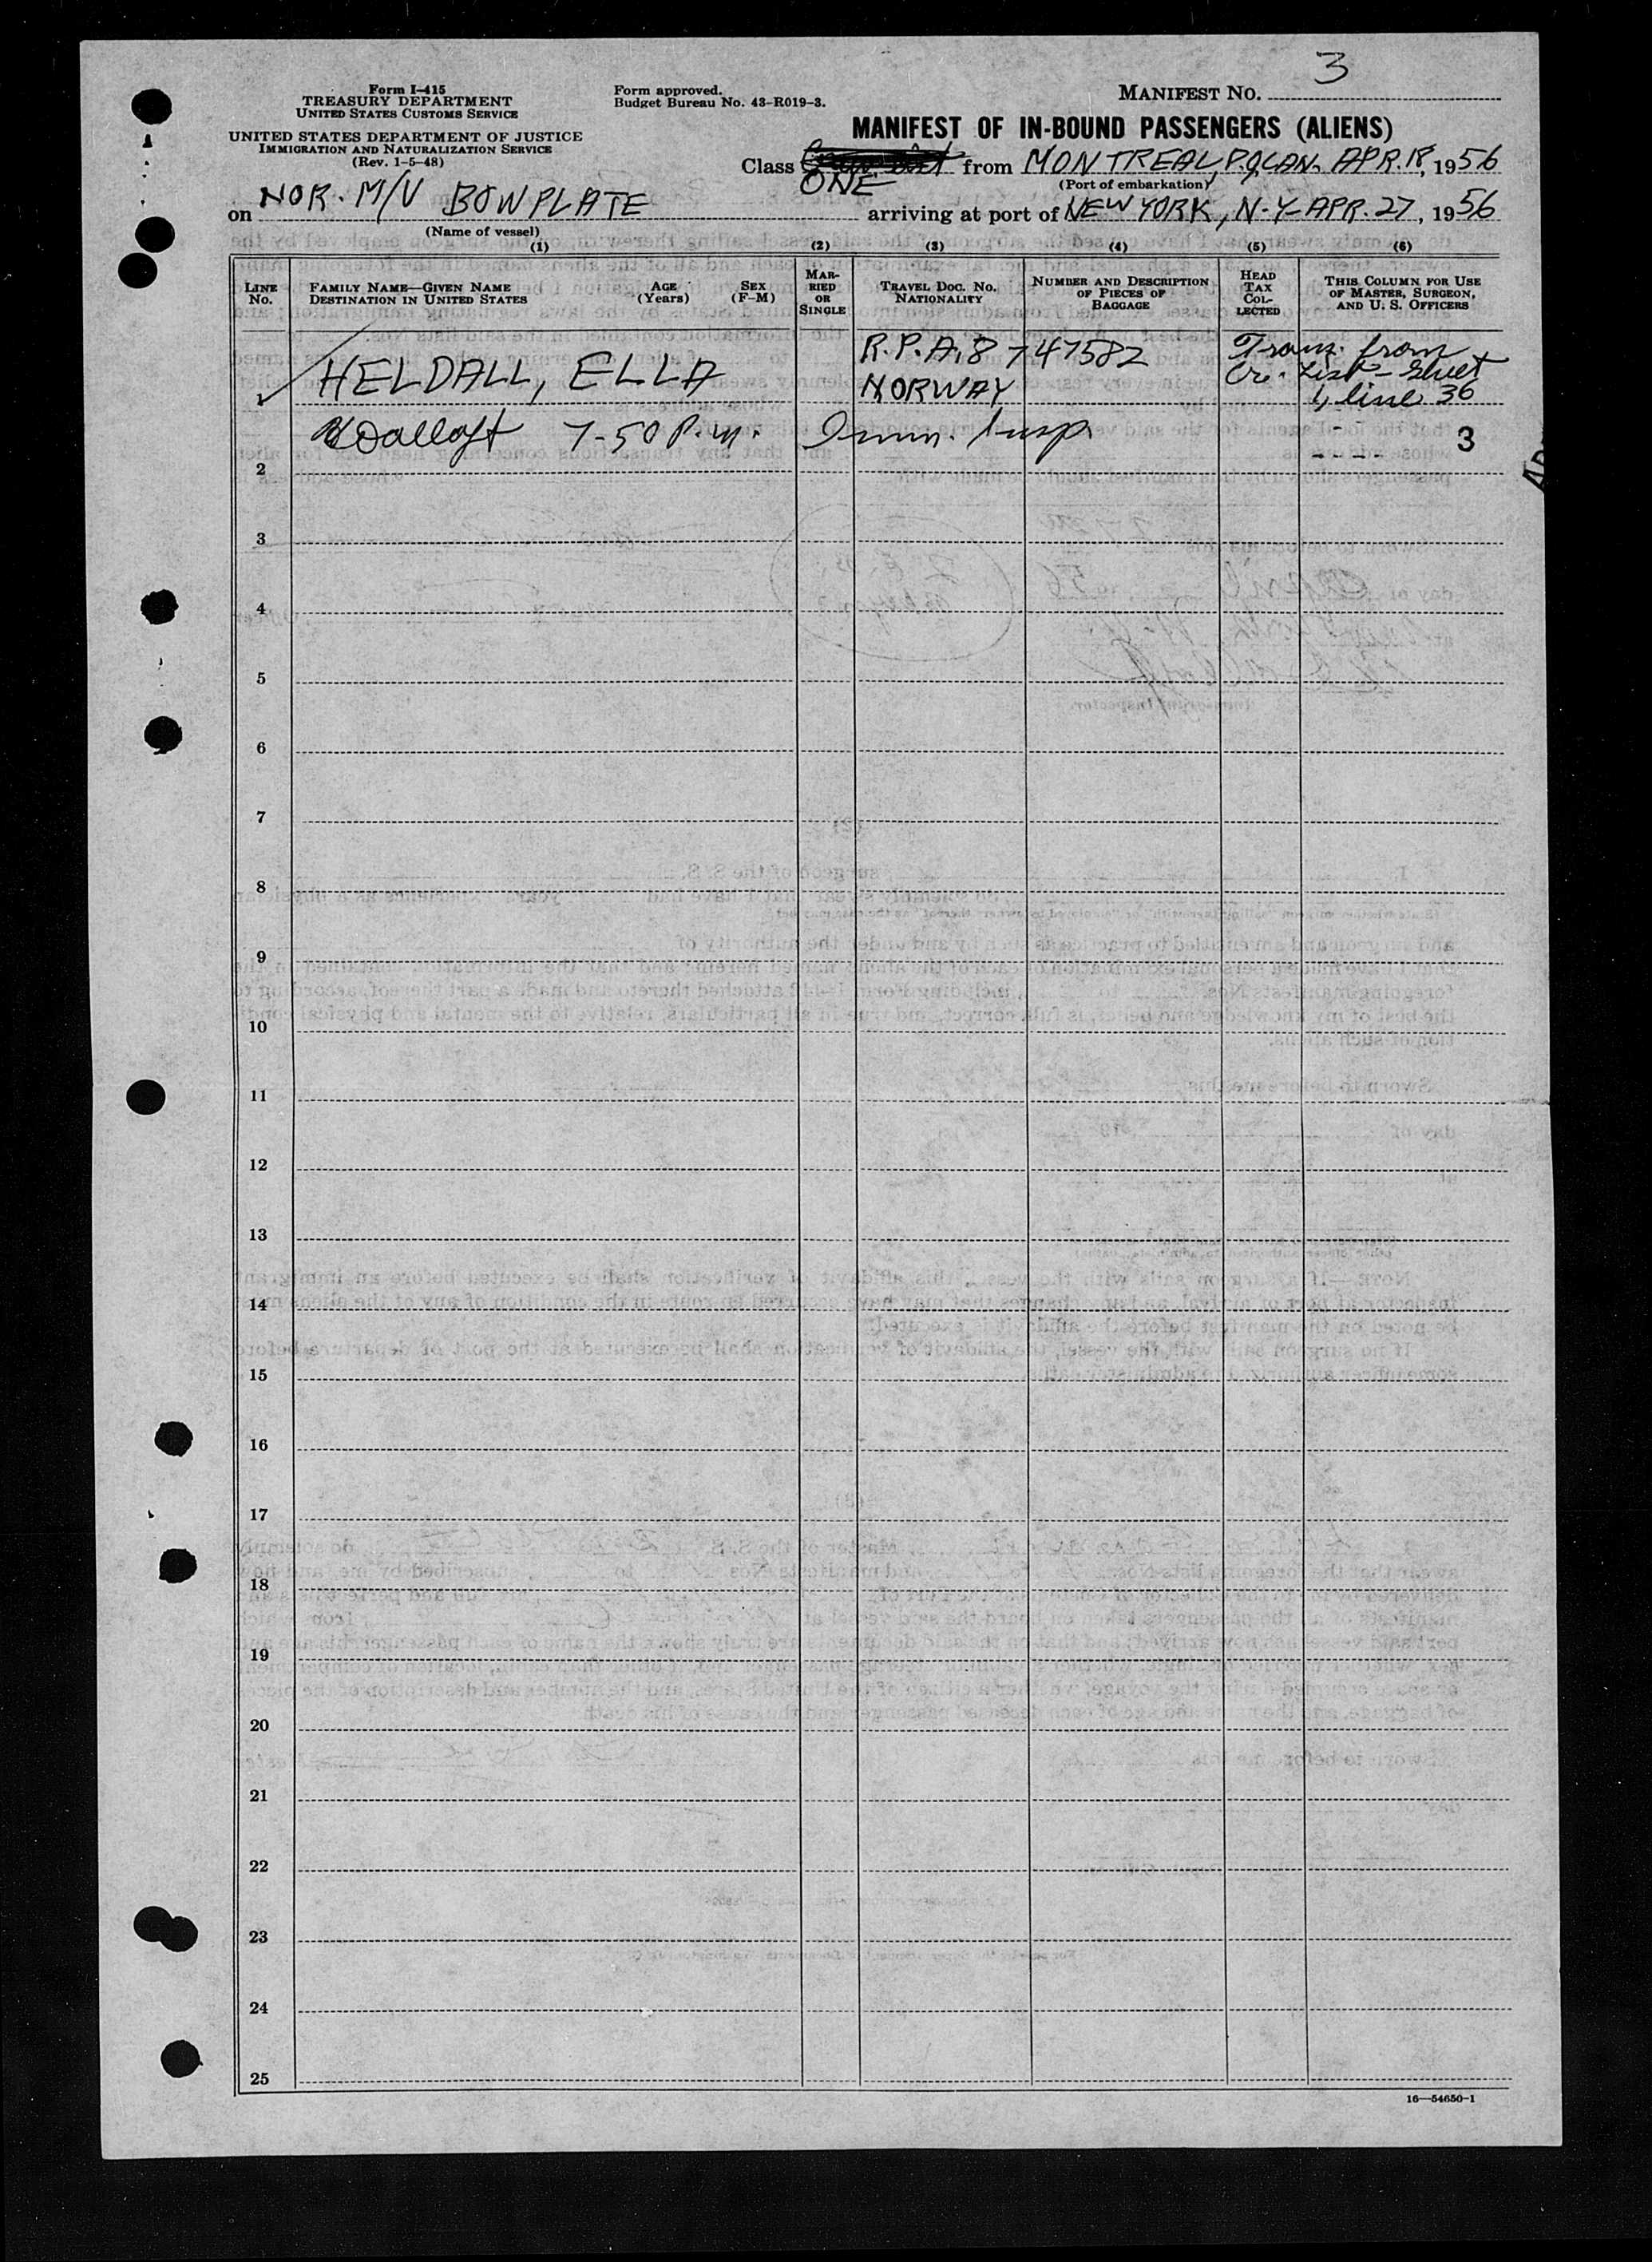 3
Form I-415
TREASURY DEPARTMENT
UNITED STATES CUSTOMS SERVICE
Form approved.
Budget Bureau No. 43-R019-3.
MANIFEST NO.
UNITED STATES DEPARTMENT OF JUSTICE
IMMIGRATION AND NATURALIZATION SERVICE
(Rev. 1-5-48)
MANIFEST OF IN-BOUND PASSENGERS (ALIENS)
Class ONE from MONTREAL, P.Q. CAN. APR. 18, 1956
(Port of embarkation)
on NOR. M/V BOW PLATE arriving at port of NEW YORK, N.Y. APR. 27, 1956
(Name of vessel)
(1) (2) (3) (4) (5) (6)
LINE No.
FAMILY NAME—GIVEN NAME
DESTINATION IN UNITED STATES
AGE (Years)
SEX (F-M)
MARRIED OR SINGLE
TRAVEL DOC. NO.
NATIONALITY
NUMBER AND DESCRIPTION OF PIECES OF BAGGAGE
HEAD TAX COLLECTED
THIS COLUMN FOR USE OF MASTER, SURGEON, AND U. S. OFFICERS
1 HELDALL, ELLA R.P.A. 8747582 NORWAY Trans. from Cr. List - Sheet 1, line 36
2 7-50 P.M. Imm. Insp. 3
3
4
5
6
7
8
9
10
11
12
13
14
15
16
17
18
19
20
21
22
23
24
25
16—54650-1